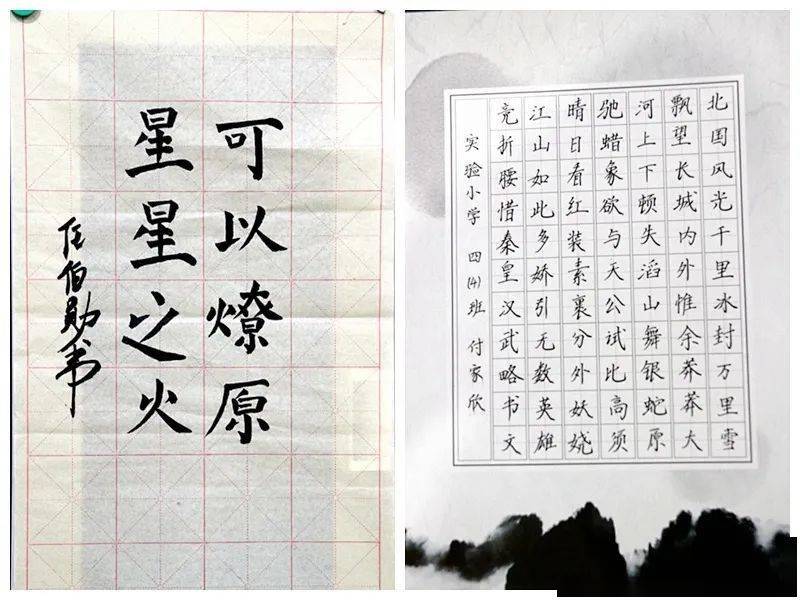 可以燎原
星星之火
任伯勋书
北国风光千里冰封万里雪
飘望长城内外惟余莽莽大
河上下顿失滔山舞银蛇原
驰蜡象欲与天公试比高须
晴日看红装素裹分外妖娆
江山如此多娇引无数英雄
竞折腰惜秦皇汉武略书文
实验小学 四(4)班 付家欣